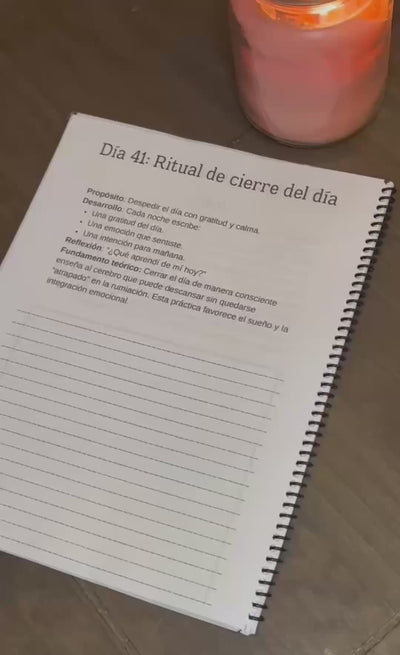 Día 41: Ritual de cierre del día
Propósito: Despedir el día con gratitud y calma.
Desarrollo: Cada noche escribe:
• Una gratitud del día.
• Una emoción que sentiste.
• Una intención para mañana.
Reflexión: "¿Qué aprendí de mí hoy?"
Fundamento teórico: Cerrar el día de manera consciente
enseña al cerebro que puede descansar sin quedarse
"atrapado" en la rumiación. Esta práctica favorece el sueño y la
integración emocional.